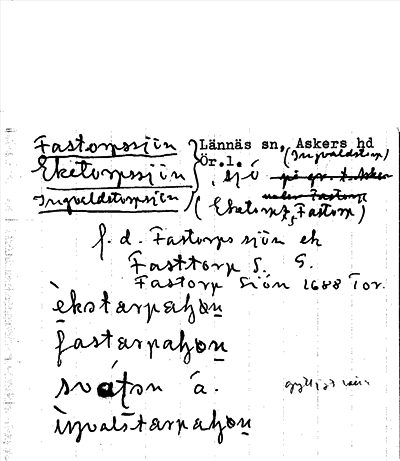 Fastorpssjön
Eketorpssjön
Ingvaldstorpssjön
Lännäs sn, Askers hd
Ör.l.
(Ingvaldstorp)
, sjö på gr. t. Asker
under Fastorp
(Eketorp, Fastorp)
f. d. Fastorps sjön ek
Fasttorp S. S.
Fastorp Siön 1688 Tor.
èkstarpaʃon
fastarpaʃon
svátsn á.
ìŋvalstarpaʃon